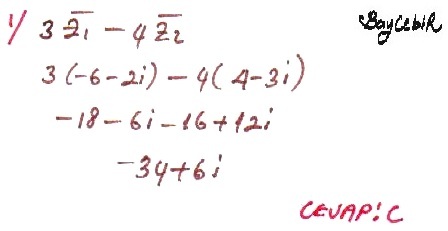 1/ 3 z̅₁ - 4 z̅₂
BayCebiR
3(-6-2i) - 4(4-3i)
-18-6i-16+12i
-34+6i
CEVAP:C